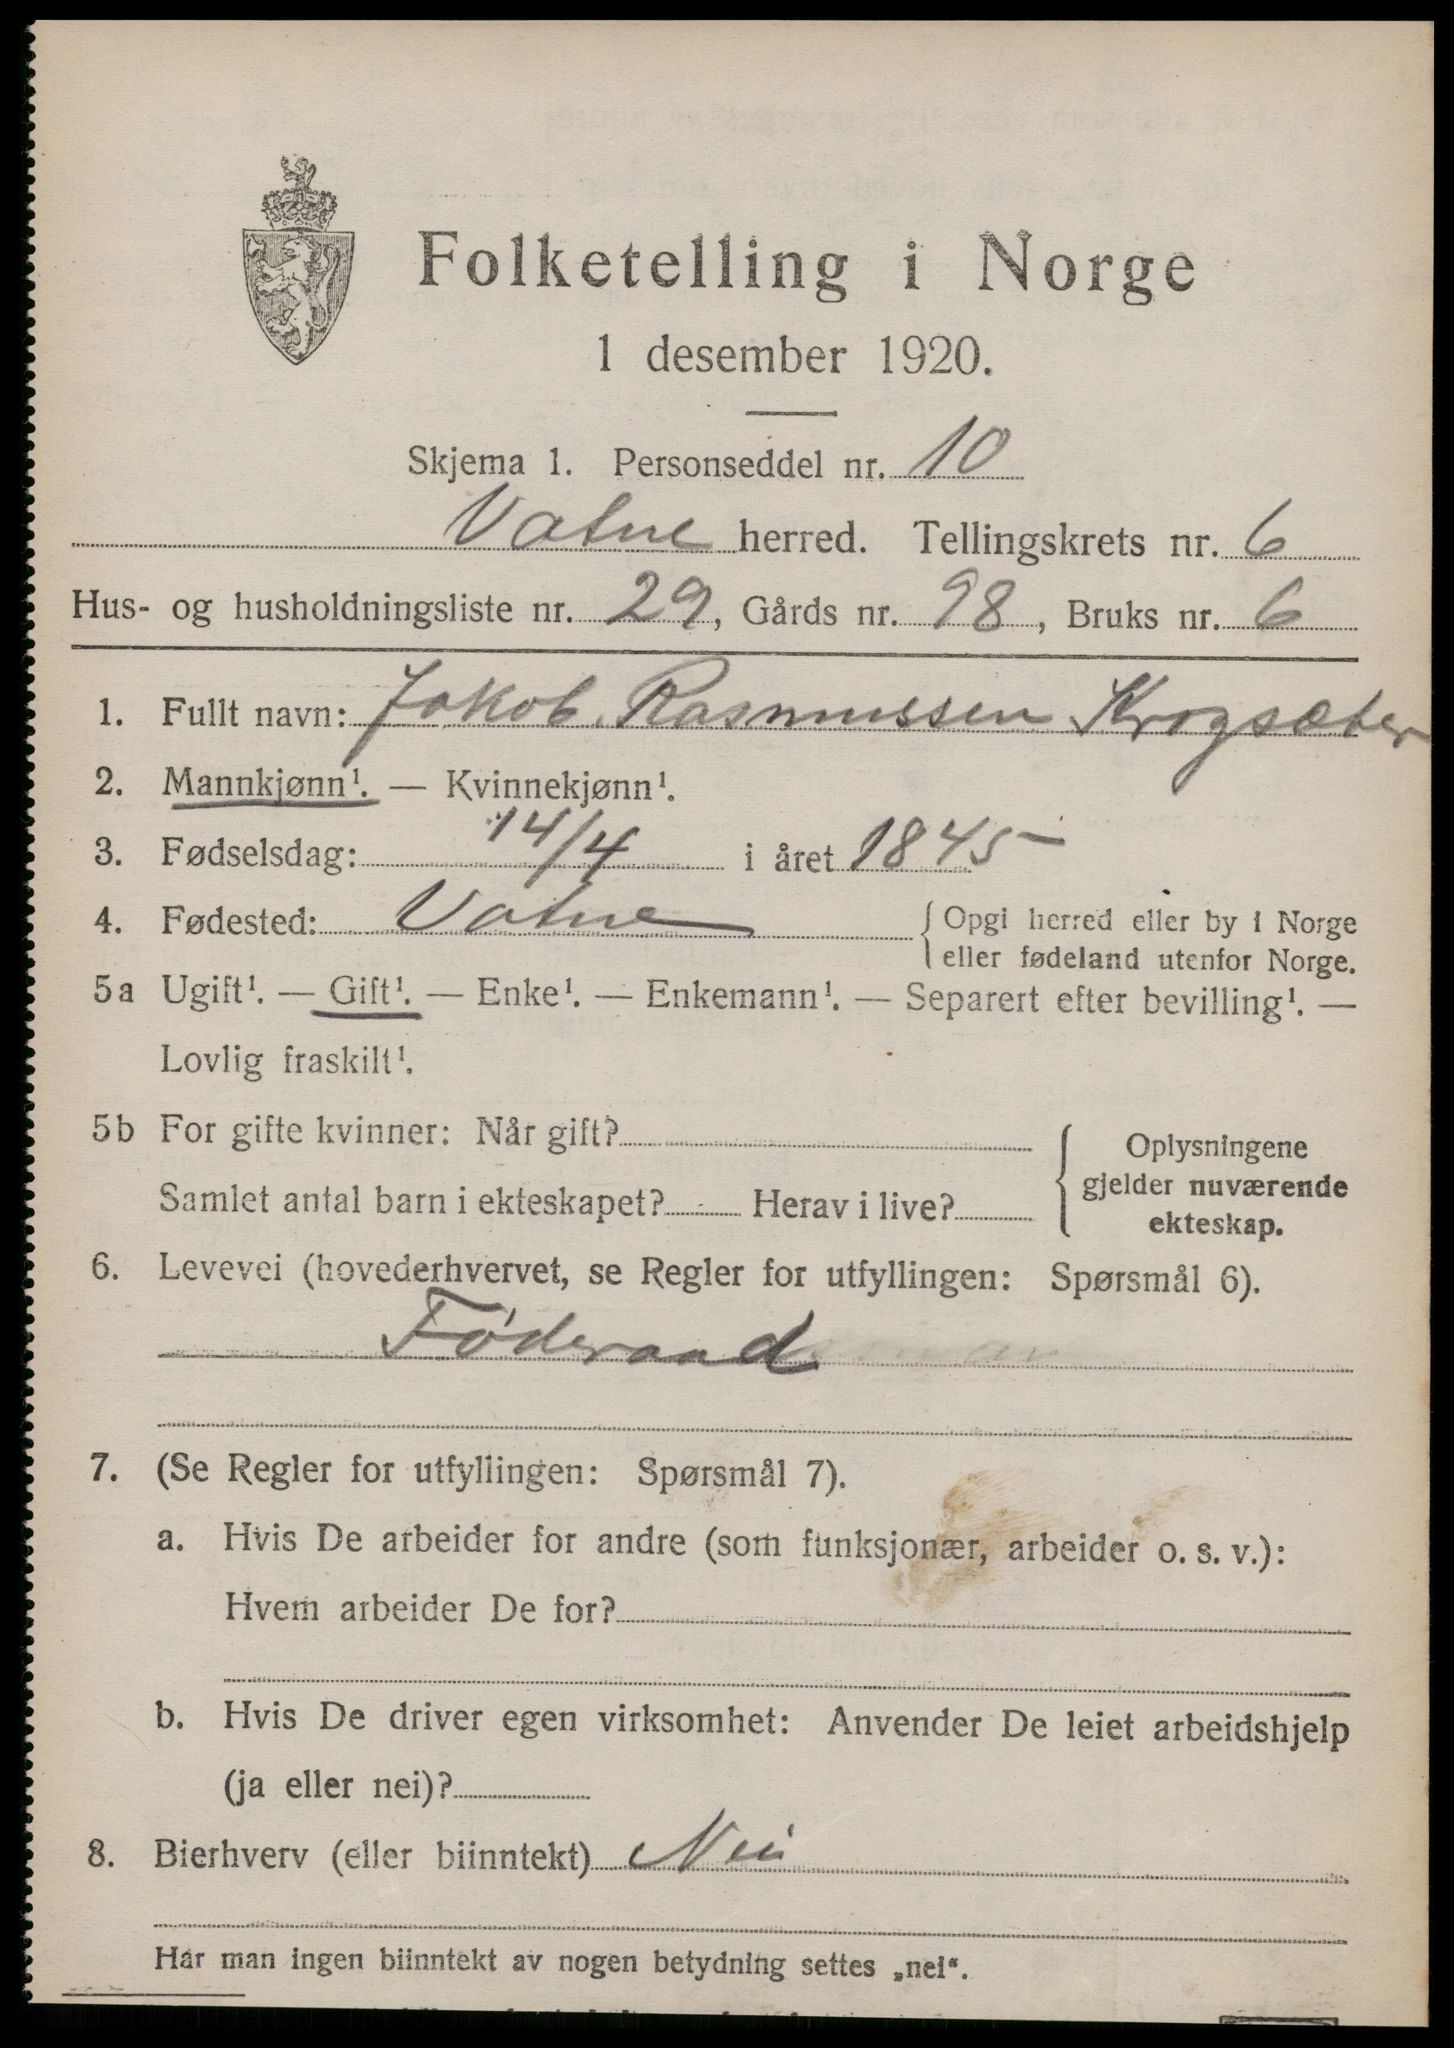 Folketelling i Norge
1 desember 1920.
Skjema 1. Personseddel nr. 10
Vatne herred. Tellingskrets nr. 6
Hus- og husholdningsliste nr. 29, Gårds nr. 98, Bruks nr. 6
1. Fullt navn: Jakob Rasmussen Krogsæter
2. Mannkjønn¹. — Kvinnekjønn¹.
3. Fødselsdag: 14/4 i året 1845
4. Fødested: Vatne { Opgi herred eller by i Norge
eller fødeland utenfor Norge.
5a Ugift¹. — Gift¹. — Enke¹. — Enkemann¹. — Separert efter bevilling¹. —
Lovlig fraskilt¹.
5b For gifte kvinner: Når gift? { Oplysningene
gjelder nuværende
Samlet antal barn i ekteskapet? Herav i live? ekteskap.
6. Levevei (hovederhvervet, se Regler for utfyllingen: Spørsmål 6).
Føderaad
7. (Se Regler for utfyllingen: Spørsmål 7).
a. Hvis De arbeider for andre (som funksjonær, arbeider o. s. v.):
Hvem arbeider De for?
b. Hvis De driver egen virksomhet: Anvender De leiet arbeidshjelp
(ja eller nei)?
8. Bierhverv (eller biinntekt) Nei
Har man ingen biinntekt av nogen betydning settes „nei“.